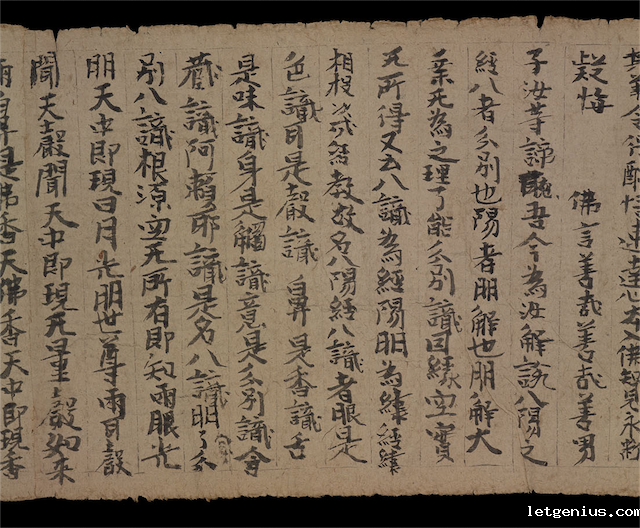 令得醒悟速達心本入佛知見永斷
疑悔 佛言善哉善哉善男
子汝等諦聽吾今為汝解說八陽之
經八者分別也陽者明解也明解大
乘无為之理了能分別識因緣空實
无所得又云八識為經陽明為緯經緯
相投以成經教故名八陽經八識者眼是
色識耳是聲識鼻是香識舌
是味識身是觸識意是分別識含
藏識阿賴耶識是名八識明了分
別八識根源空无所有即知兩眼光
明天中即現日月光明世尊兩耳聲
聞天聲聞天中即現无量聲如來
兩鼻是佛香天佛香天中即現香
letgenius.com